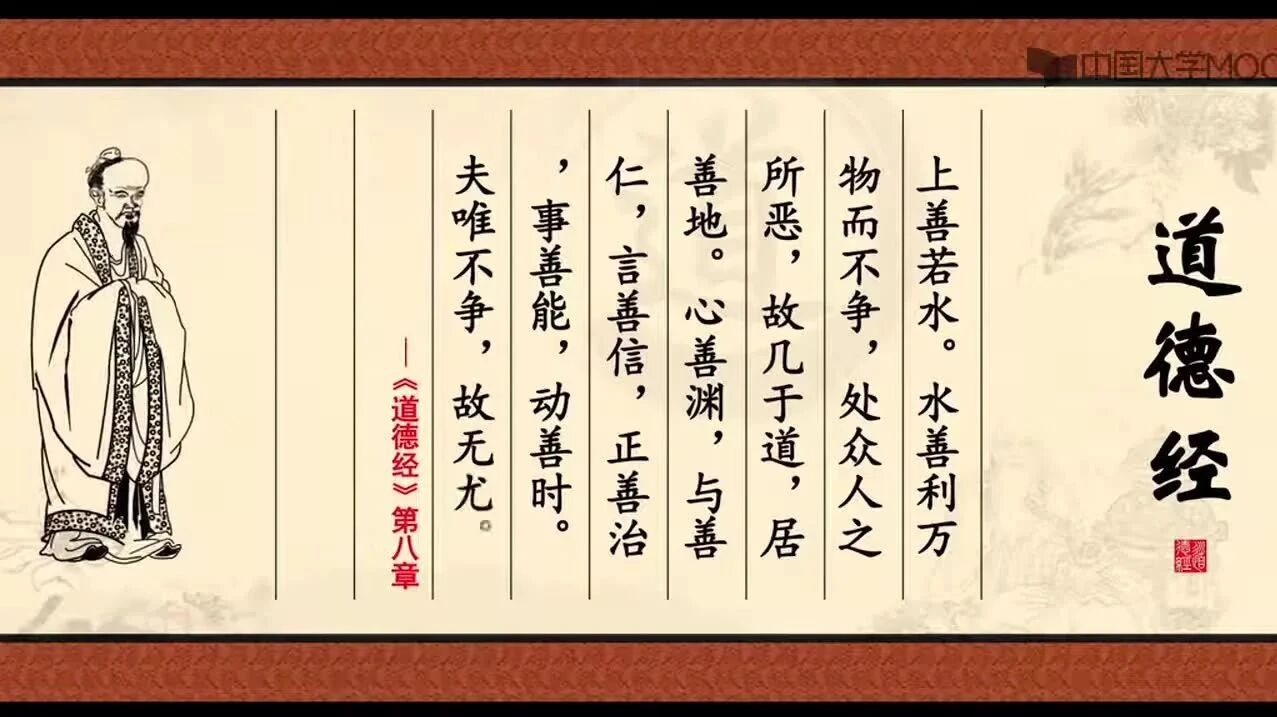 道德经
上善若水。水善利万
物而不争，处众人之
所恶，故几于道，居
善地。心善渊，与善
仁，言善信，正善治
，事善能，动善时。
夫唯不争，故无尤。
—《道德经》第八章
中国大学MOO